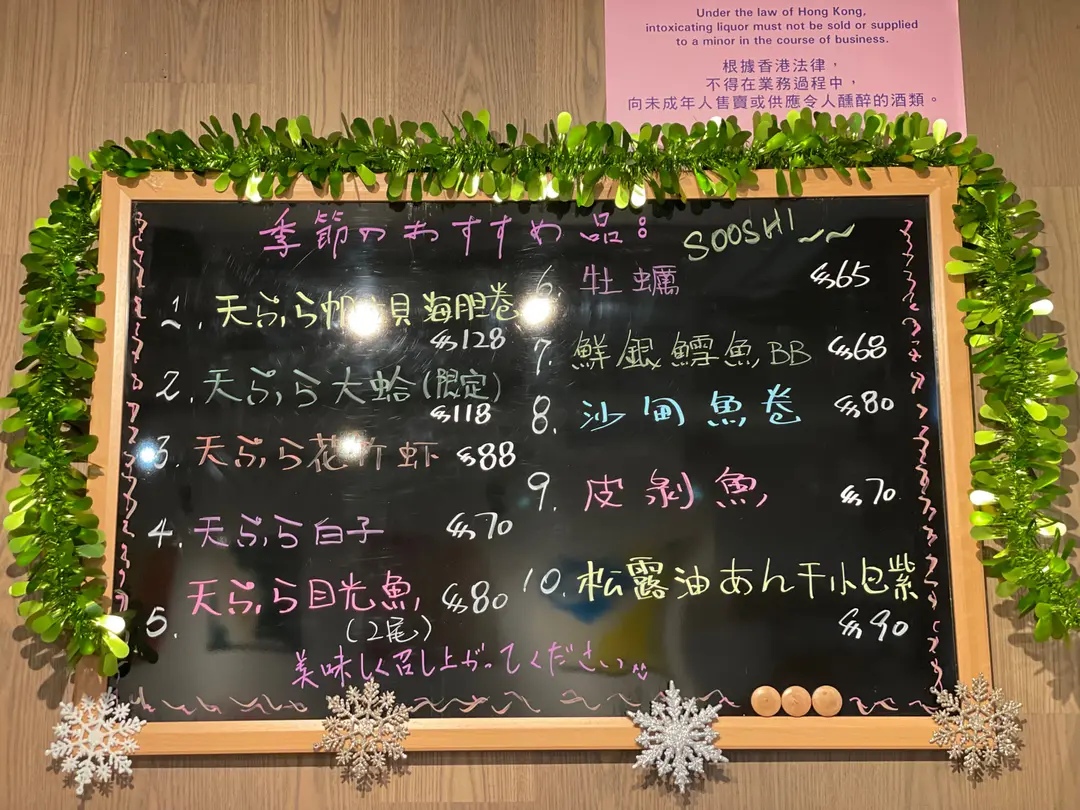 Under the law of Hong Kong,
intoxicating liquor must not be sold or supplied
to a minor in the course of business.
根據香港法律，
不得在業務過程中，
向未成年人售賣或供應令人醺醉的酒類。
季節のおすすめ品：
SOOSHI
1. 天ぷら帆立貝海胆卷
$128
2. 天ぷら大蛤(限定)
$118
3. 天ぷら花竹虾 $88
4. 天ぷら白子 $70
5. 天ぷら目光魚 $80
(2尾)
6. 牡蠣 $65
7. 鮮銀鱈魚BB $68
8. 沙甸魚卷 $80
9. 皮剥魚 $70
10. 松露油あん干小包紫
$90
美味しく召し上がってください